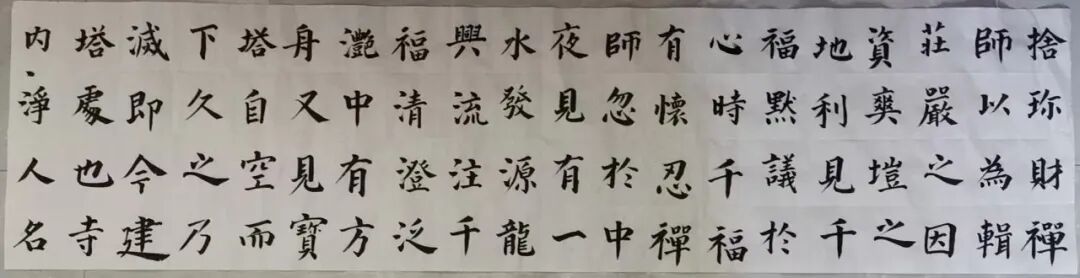 捨珎財禪
師以為輯
莊嚴之因
資爽塏之
地利見千
福默議於
心時千福
有懷忍禪
師忽於中
夜見有一
水發源龍
興流注千
福清澄泛
灔中有方
身又見寶
塔自空而
下久之乃
滅即今建
塔處也寺
内淨人名